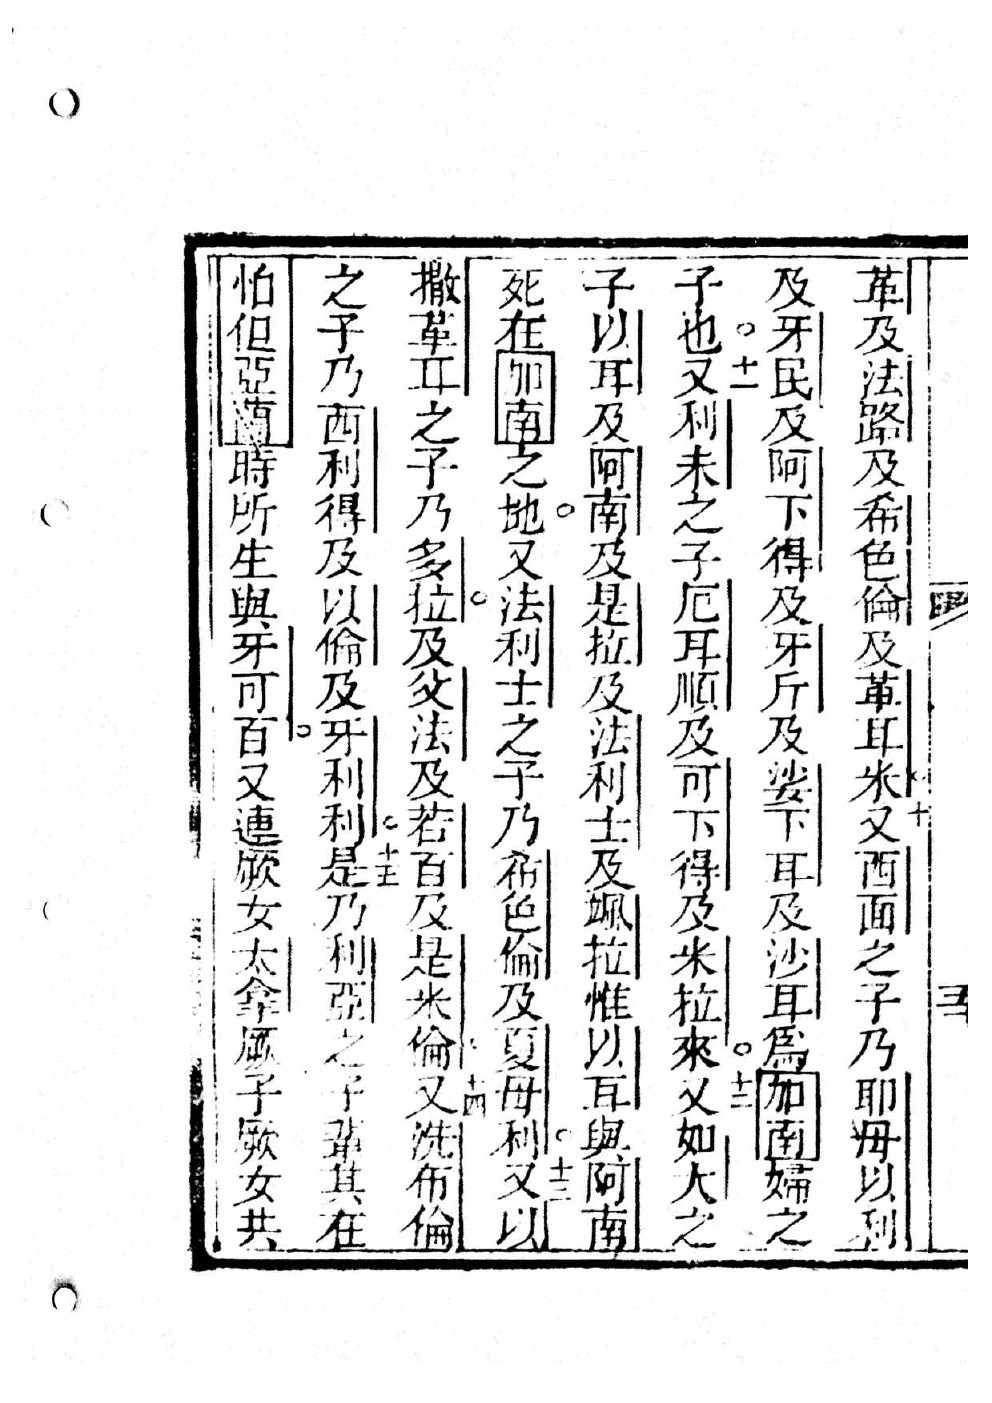 革及法路及希色倫及革耳米。十又西面之子乃耶毋以利
及牙民及阿下得及牙斤及娑下耳及沙耳爲加南婦之
子也。十一又利未之子厄耳順及可下得及米拉來。十二又如大之
子以耳及阿南及是拉及法利士及颯拉惟以耳與阿南
死在加南之地。又法利士之子乃希色倫及夏毋利。十三又以
撒革耳之子乃多拉。及父法及若百及是米倫。十四又洗布倫
之子乃西利得及以倫及牙利利。十五是乃利亞之子輩其在
怕但亞蘭時所生與牙可百。又連厥女太拿厥子厥女共
五